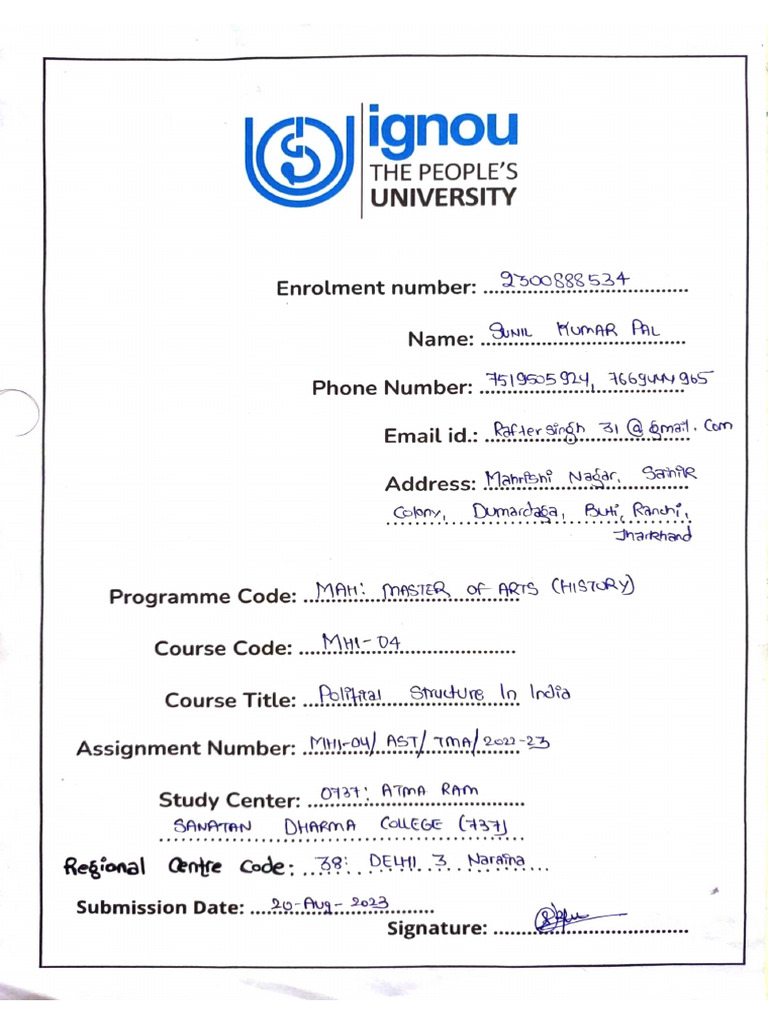 ignou
THE PEOPLE'S
UNIVERSITY
Enrolment number: 2300888534
Name: SUNIL KUMAR PAL
Phone Number: 7519505924, 7669444965
Email id.: Raftersingh 31@gmail.com
Address: Mahrishi Nagar, Sainik
Colony, Dumardaga, Buti, Ranchi,
Jharkhand
Programme Code: MAH: MASTER OF ARTS (HISTORY)
Course Code: MHI-04
Course Title: Political Structure In India
Assignment Number: MHI-04/AST/TMA/2022-23
Study Center: 0737: ATMA RAM
SANATAN DHARMA COLLEGE (737)
Regional Centre Code: 38: DELHI 3 Naraina
Submission Date: 20-Aug-2023
Signature: